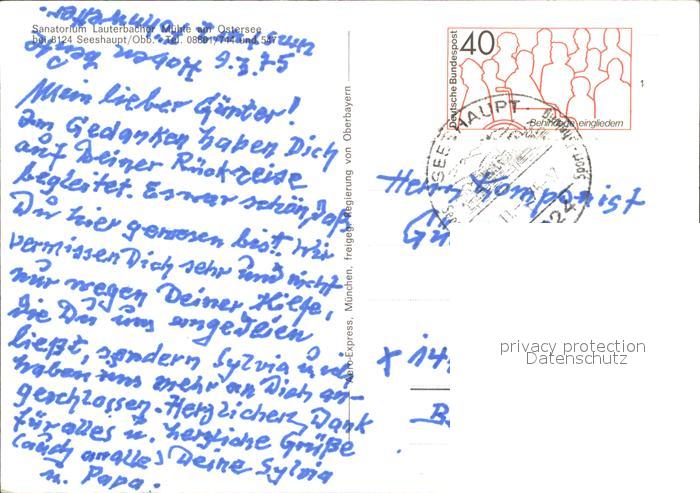 Sanatorium Lauterbacher Mühle am Ostersee
bei 8124 Seeshaupt/Obb. · Tel. 08801/744 und 547
9.3.75
Mein lieber Günter!
In Gedanken haben Dich
auf Deiner Rückreise
begleitet. Es war schön, daß
Du hier gewesen bist. Wir
vermissen Dich sehr und nicht
nur wegen Deiner Hilfe,
die Du uns angedeien
ließt, sondern Sylvia u. ich
haben uns mehr an Dich an-
geschlossen. Herzlichen Dank
für alles u. herzliche Grüße
(auch an alle) Deine Sylvia
u. Papa.
Aero-Express, München, freigeg. Regierung von Oberbayern
Deutsche Bundespost
40
Behinderte eingliedern
1
SEESHAUPT
8124
Herrn Komponist
Gü
x 14
B
privacy protection
Datenschutz